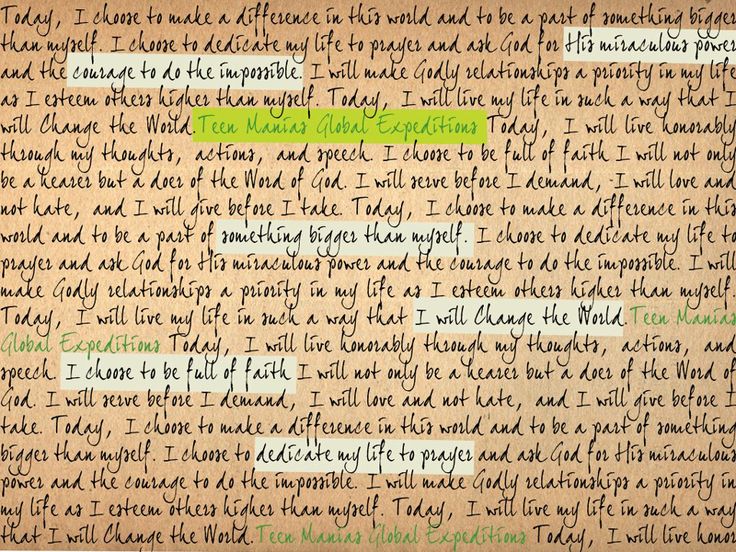 Today, I choose to make a difference in this world and to be a part of something bigger
than myself. I choose to dedicate my life to prayer and ask God for His miraculous power
and the courage to do the impossible. I will make Godly relationships a priority in my life
as I esteem others higher than myself. Today, I will live my life in such a way that I
will Change the World. Teen Manias Global Expeditions Today, I will live honorably
through my thoughts, actions, and speech. I choose to be full of faith I will not only
be a hearer but a doer of the Word of God. I will serve before I demand, I will love and
not hate, and I will give before I take. Today, I choose to make a difference in this
world and to be a part of something bigger than myself. I choose to dedicate my life to
prayer and ask God for His miraculous power and the courage to do the impossible. I will
make Godly relationships a priority in my life as I esteem others higher than myself.
Today, I will live my life in such a way that I will Change the World. Teen Manias
Global Expeditions Today, I will live honorably through my thoughts, actions, and
speech. I choose to be full of faith I will not only be a hearer but a doer of the Word of
God. I will serve before I demand, I will love and not hate, and I will give before I
take. Today, I choose to make a difference in this world and to be a part of something
bigger than myself. I choose to dedicate my life to prayer and ask God for His miraculous
power and the courage to do the impossible. I will make Godly relationships a priority in
my life as I esteem others higher than myself. Today, I will live my life in such a way
that I will Change the World. Teen Manias Global Expeditions Today, I will live honor